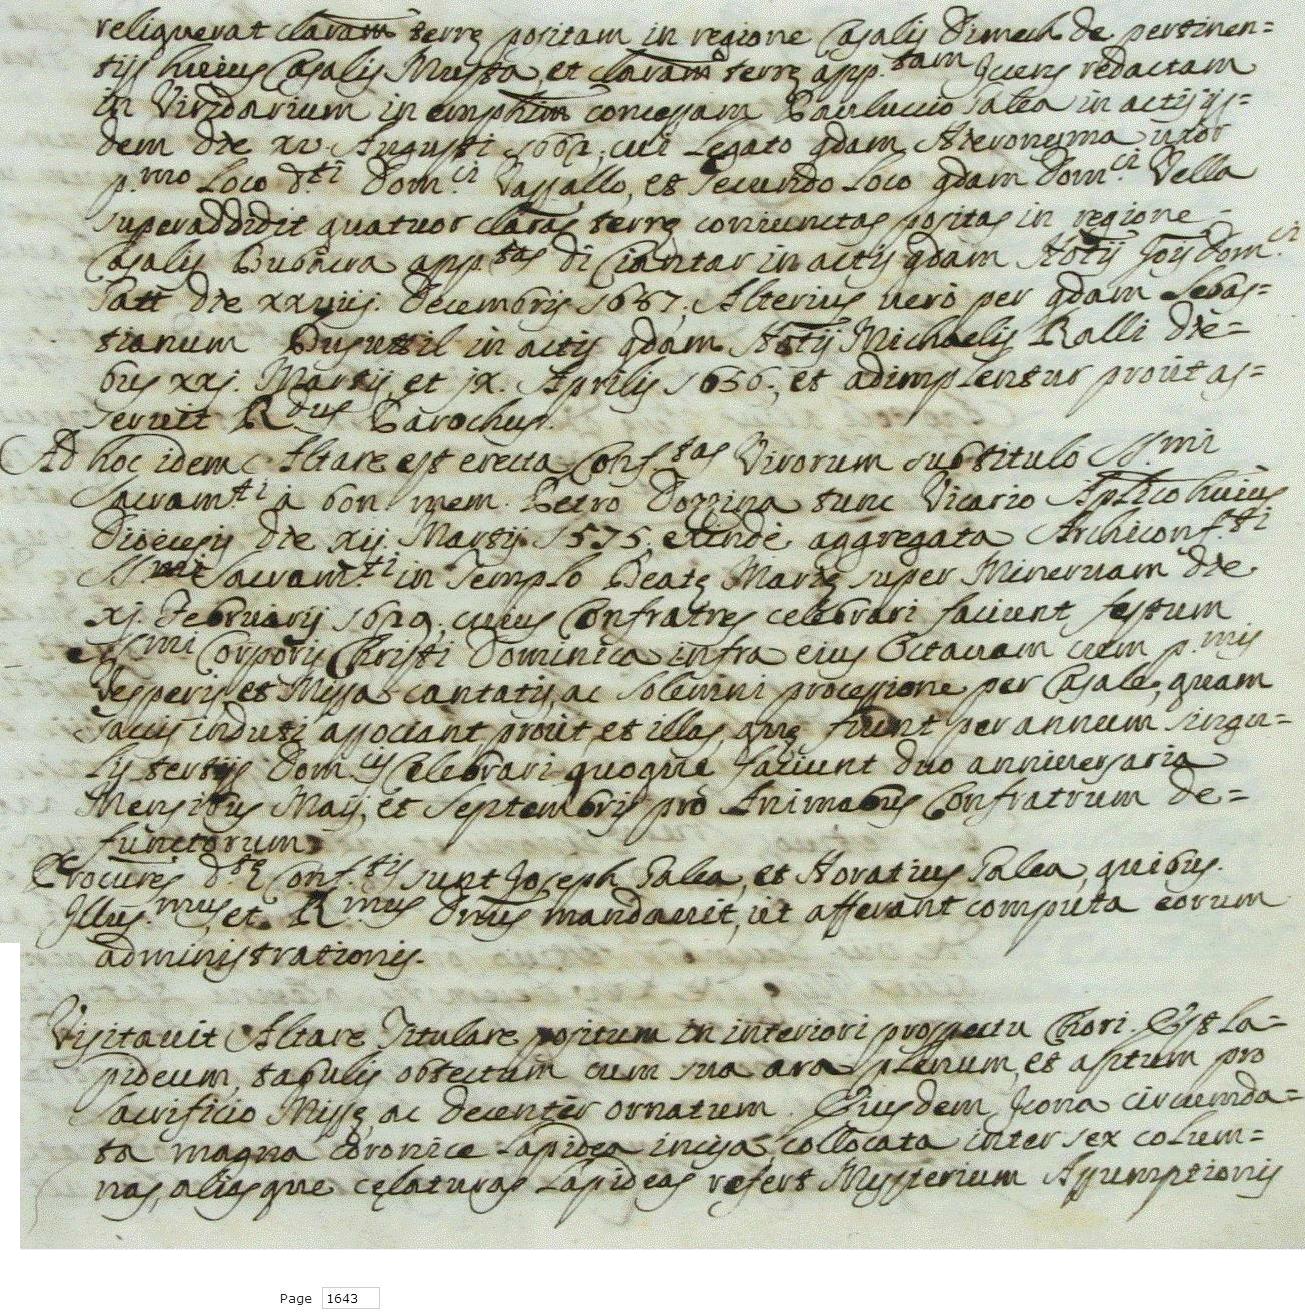 reliquerat clausam terrę positam in regione Casalis Dimech de pertinen=
tijs huius Casalis Musta, et clausam terrę app.tam redactam
in Viridarium in emphim concessam Pauluccio Galea in actis ijs=
dem die xv Augusti 1662, cui Legato qdam Hieronuma uxor
p.mo Loco dti Dom.ci Vassallo, et secundo Loco qdam Dom.ci Vella
superaddidit quatuor clasas terrę coniunctas positas in regione
Casalis Bubacra app.tas di Ciantar in actis qdam Notij Jois Dom.ci
Gatt die xxviij. Decembris 1667, Alterius vero per qdam Sebas=
tianum Busuttil in actis qdam Notij Michaelis Ralli die=
bus xxj. Martij, et jx. Aprilis 1656, et adimplentur prout as=
seruit Rdus Parochus.
Ad hoc idem Altare est erecta Conf.tas Virorum sub titulo SS.mi
Sacram.ti à bon mem. Petro Duzzina tunc Vicario Aplico huius
Dioecesis die xij. Martij 1575, et inde aggregata Archiconf.ti
SSmi Sacram.ti in Templo Beatę Marię super Mineruam die
xj. Februarij 1620, cuius Confratres celebrari faciunt festum
SSmi Corporis Christi Dominica infra eius Octauam cum p.mis
Vesperis et Missa cantatis, ac solemni processione per Casale, quam
saccis induti associant, prout, et illas, quę fiunt per annum singu=
lis tertijs Dom.cis Celebrari quoque faciunt duo anniuersaria
Mensibus Maij, et Septembris pro Animabus Confratrum de=
functorum
Procures dtę Conf.tis sunt Joseph Galea, et Horatius Galea, quibus
Illus.mus, et Rmus Dnus mandauit, ut afferant computa eorum
administrationis.
Visitauit Altare Titulare positum in interiori prospectu Chori. Est La=
pideum, tabulis obtectum cum sua ara plenum, et aptum pro
Sacrificio Missę, ac decenter ornatum. Eiusdem Icona circumda=
ta magna coronice Lapidea incisa, collocata inter sex colum=
nas, aliasque cęlaturas Lapideas refert Mysterium Assumptionis
Page 1643